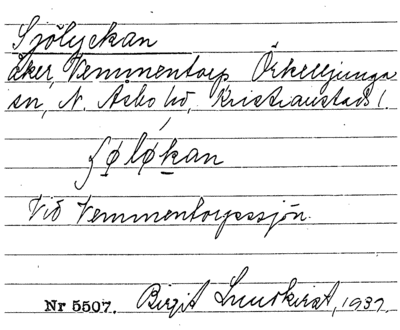 Sjölyckan
åker, Vemmentorp Örkelljunga
sn, N. Åsbo hd, Kristianstads l.
ʃøløkan
Vid Vemmentorpssjön.
Nr 5507. Birgit Lundkvist, 1937.